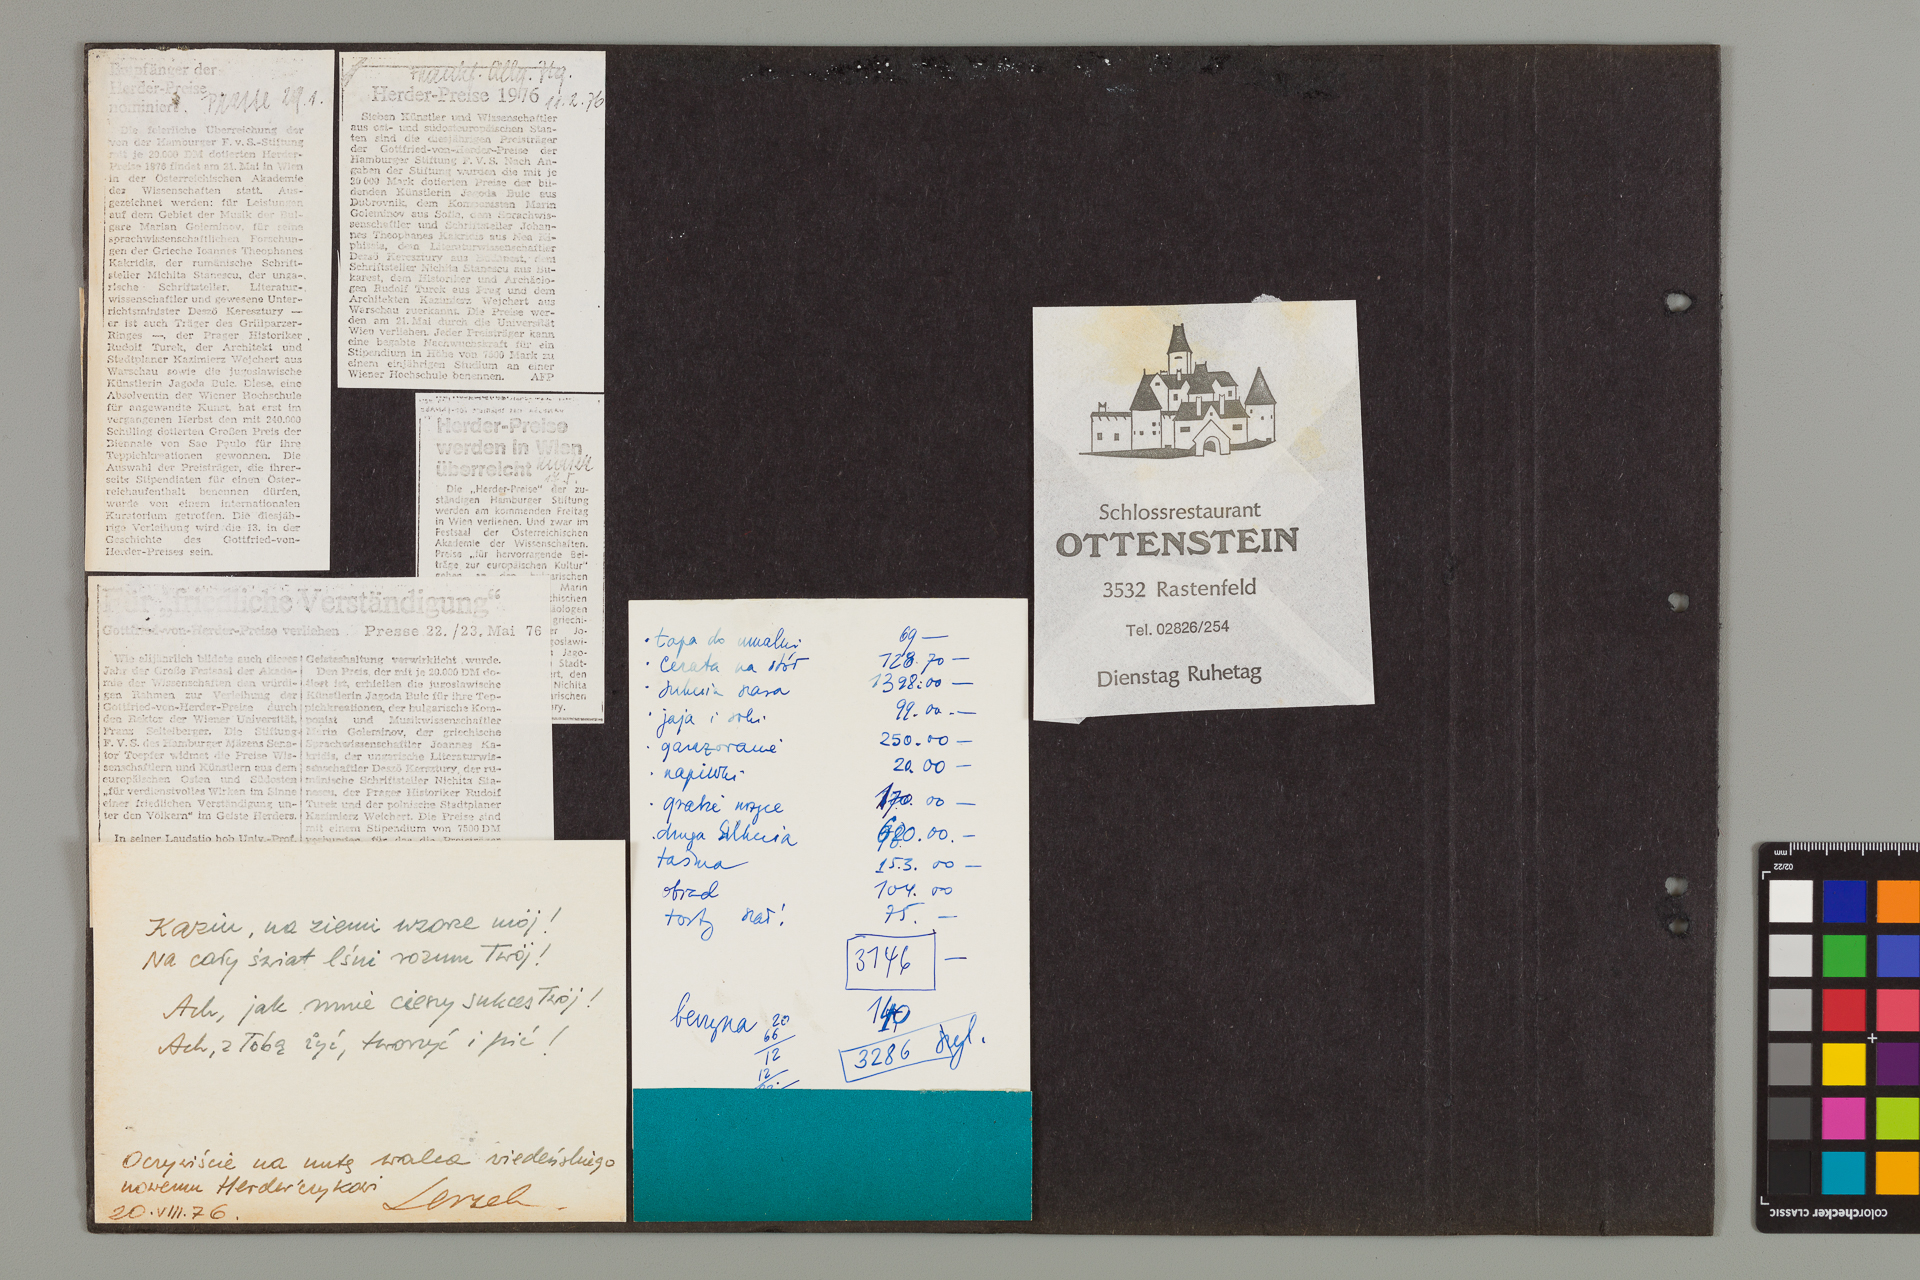 Empfänger der
Herder-Preise
nominiert. Presse 29.1.
Die feierliche Überreichung der
von der Hamburger F. v. S.-Stiftung
mit je 20.000 DM dotierten Herder-
Preise 1976 findet am 21. Mai in Wien
in der Österreichischen Akademie
des Wissenschaften statt. Aus-
gezeichnet werden: für Leistungen
auf dem Gebiet der Musik der Bul-
gare Marian Goleminov, für seine
sprachwissenschaftlichen Forschun-
gen der Grieche Ioannes Theophanes
Kakridis, der rumänische Schrift-
steller Michita Stanescu, der unga-
rische Schriftsteller, Literatur-
wissenschaftler und gewesene Unter-
richtsminister Deszö Keresztury —
er ist auch Träger des Grillparzer-
Ringes —, der Prager Historiker
Rudolf Turek, der Architekt und
Stadtplaner Kazimierz Wejchert aus
Warschau sowie die jugoslawische
Künstlerin Jagoda Buic. Diese, eine
Absolventin der Wiener Hochschule
für angewandte Kunst, hat erst im
vergangenen Herbst den mit 240.000
Schilling dotierten Großen Preis der
Biennale von Sao Paulo für ihre
Teppichkreationen gewonnen. Die
Auswahl der Preisträger, die ihrer-
seits Stipendiaten für einen Öster-
reichaufenthalt benennen dürfen,
wurde von einem internationalen
Kuratorium getroffen. Die diesjäh-
rige Verleihung wird die 13. in der
Geschichte des Gottfried-von-
Herder-Preises sein.
Frankf. Allg. Ztg.
Herder-Preise 1976 11.2.76
Sieben Künstler und Wissenschaftler
aus ost- und südosteuropäischen Staa-
ten sind die diesjährigen Preisträger
der Gottfried-von-Herder-Preise der
Hamburger Stiftung F. V. S. Nach An-
gaben der Stiftung wurden die mit je
20 000 Mark dotierten Preise der bil-
denden Künstlerin Jagoda Buic aus
Dubrovnik, dem Komponisten Marin
Goleminov aus Sofia, dem Sprachwis-
senschaftler und Schriftsteller Johan-
nes Theophanes Kakridis aus Nea Ki-
phisia, dem Literaturwissenschaftler
Deszö Keresztury aus Budapest, dem
Schriftsteller Nichita Stanescu aus Bu-
karest, dem Historiker und Archäolo-
gen Rudolf Turek aus Prag und dem
Architekten Kazimierz Wejchert aus
Warschau zuerkannt. Die Preise wer-
den am 21. Mai durch die Universität
Wien verliehen. Jeder Preisträger kann
eine begabte Nachwuchskraft für ein
Stipendium in Höhe von 7500 Mark zu
einem einjährigen Studium an einer
Wiener Hochschule benennen. AFP
Herder-Preise
werden in Wien
überreicht Kurier
Die „Herder-Preise" der zu-
ständigen Hamburger Stiftung
werden am kommenden Freitag
in Wien verliehen. Und zwar im
Festsaal der Österreichischen
Akademie der Wissenschaften.
Preise „für hervorragende Bei-
träge zur europäischen Kultur"
Für „friedliche Verständigung"
Gottfried-von-Herder-Preise verliehen Presse 22./23. Mai 76
Wie alljährlich bildete auch dieses
Jahr der Große Festsaal der Akade-
mie der Wissenschaften den würdi-
gen Rahmen zur Verleihung der
Gottfried-von-Herder-Preise durch
den Rektor der Wiener Universität,
Franz Seitelberger. Die Stiftung
F. V. S. des Hamburger Mäzens Sena-
tor Toepfer widmet die Preise Wis-
senschaftlern und Künstlern aus dem
europäischen Osten und Südosten
„für verdienstvolles Wirken im Sinne
einer friedlichen Verständigung un-
ter den Völkern" im Geiste Herders.
In seiner Laudatio hob Univ.-Prof.
Geisteshaltung verwirklicht wurde.
Den Preis, der mit je 20.000 DM do-
tiert ist, erhielten die jugoslawische
Künstlerin Jagoda Buic für ihre Tep-
pichkreationen, der bulgarische Kom-
ponist und Musikwissenschaftler
Marin Goleminov, der griechische
Sprachwissenschaftler Joannes Ka-
kridis, der ungarische Literaturwis-
senschaftler Deszö Kersztury, der ru-
mänische Schriftsteller Nichita Sta-
nescu, der Prager Historiker Rudolf
Turek und der polnische Stadtplaner
Kazimierz Weichert. Die Preise sind
mit einem Stipendium von 7500 DM
Kaziu, na ziemi wzorze mój!
Na cały świat lśni rozum Twój!
Ach, jak mnie cieszy sukces Twój!
Ach, z Tobą żyć, tworzyć i pić!
Oczywiście na nutę walca wiedeńskiego
nowemu Herder'czykowi
20.VIII.76.
· łapa do umalki 69 —
· Cerata na stół 128.70 —
· suknia 1398.00 —
· jaja i 99.00 —
· garażowanie 250.00 —
· napiwki 20.00 —
· grabie nożyce 170.00 —
· druga suknia 680.00 —
taśma 153.00 —
obiad 104.00
torty 75. —
3146 —
benzyna 140
20
66
12
12
3286 szyl.
Schlossrestaurant
OTTENSTEIN
3532 Rastenfeld
Tel. 02826/254
Dienstag Ruhetag
mm
02/22
colorchecker CLASSIC